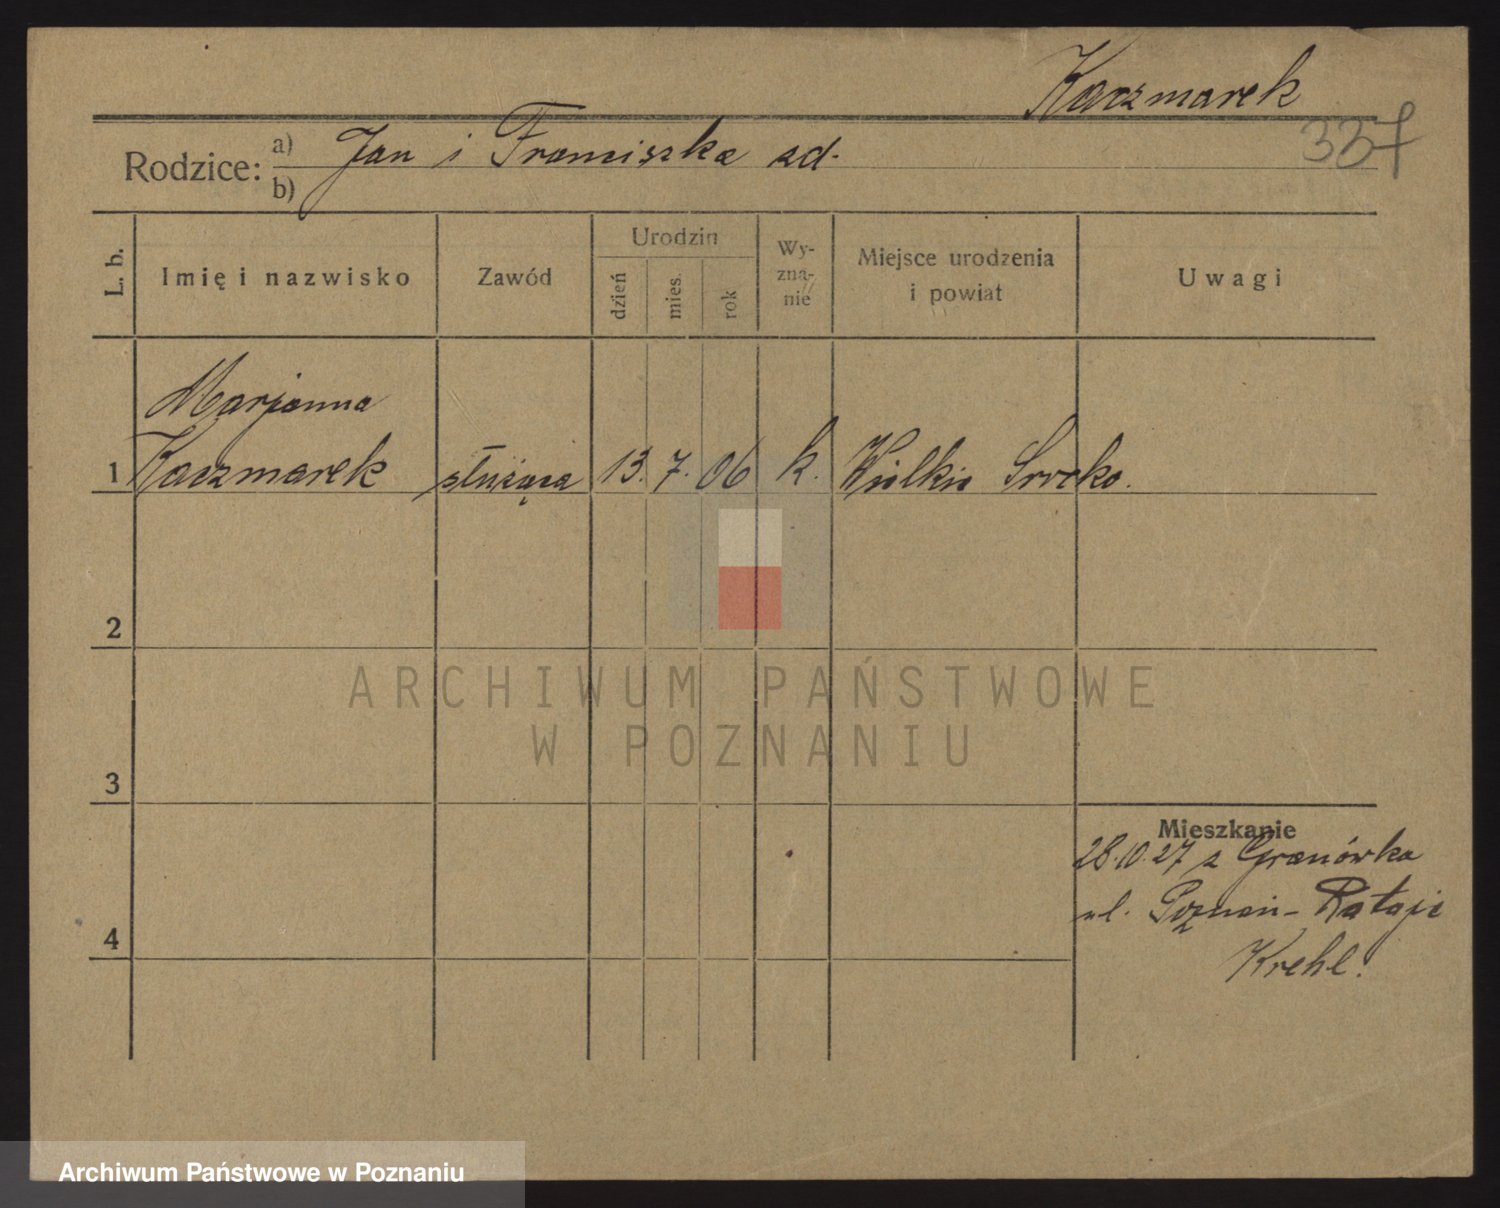 Kaczmarek
337
Rodzice: a) Jan i Franciszka zd.
b)
L. b.
Imię i nazwisko
Zawód
Urodzin
dzień
mies.
rok
Wy-
zna-
nie
Miejsce urodzenia
i powiat
Uwagi
Marjanna
1 Kaczmarek służąca 13. 7. 06 k. Wielkie Srocko.
2
3
4
Mieszkanie
28.10.27 z Granówka
ul. Poznań - Rataje
Krehl.
ARCHIWUM PAŃSTWOWE
W POZNANIU
Archiwum Państwowe w Poznaniu